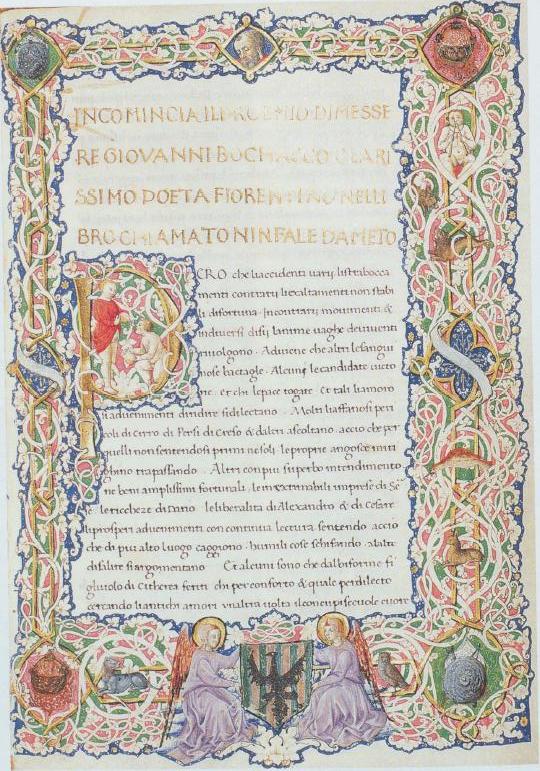 INCOMINCIA IL PROEMIO DI MESSE
RE GIOVANNI BOCHACCO CLARI
SSIMO POETA FIORENTINO NELLI
BRO CHIAMATO NINFALE DAMETO
PERO che liaccidenti varij
menti contrarij liexaltamenti non stabi
li disfortuna. Incontrarij movimenti &
lanime vaghe devivenți
rivolgono. Adviene che altri
nose bactaglie. Alcuni le candidate
rie. et chi le pace togate. Et tali liamoro
si advenimenti di udire si dilectano. Molti liaffannosi peri
coli di Cirro di Persi di Creso & daltri ascoltano. accio che per
quelli non sentendosi primi ne soli. le proprie angosce miti
ghino trapassando. Altri con piu superbo intendimento
ne beni amplissimi fortunali. le imprese di
le richeze di Dario. le liberalita di Alexandro & di Cesare
li prosperi advenimenti con continua lectura sentendo. accio
che di piu alto luogo caggiono. humili cose schifando. alalte
di salire si argomentano. Et alcuni sono che dal biforme fi
gliuolo di Citherea feriti chi per conforto & quale per dilecto
cercando liantichi amori un altra volta